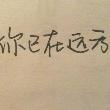 你已在远方